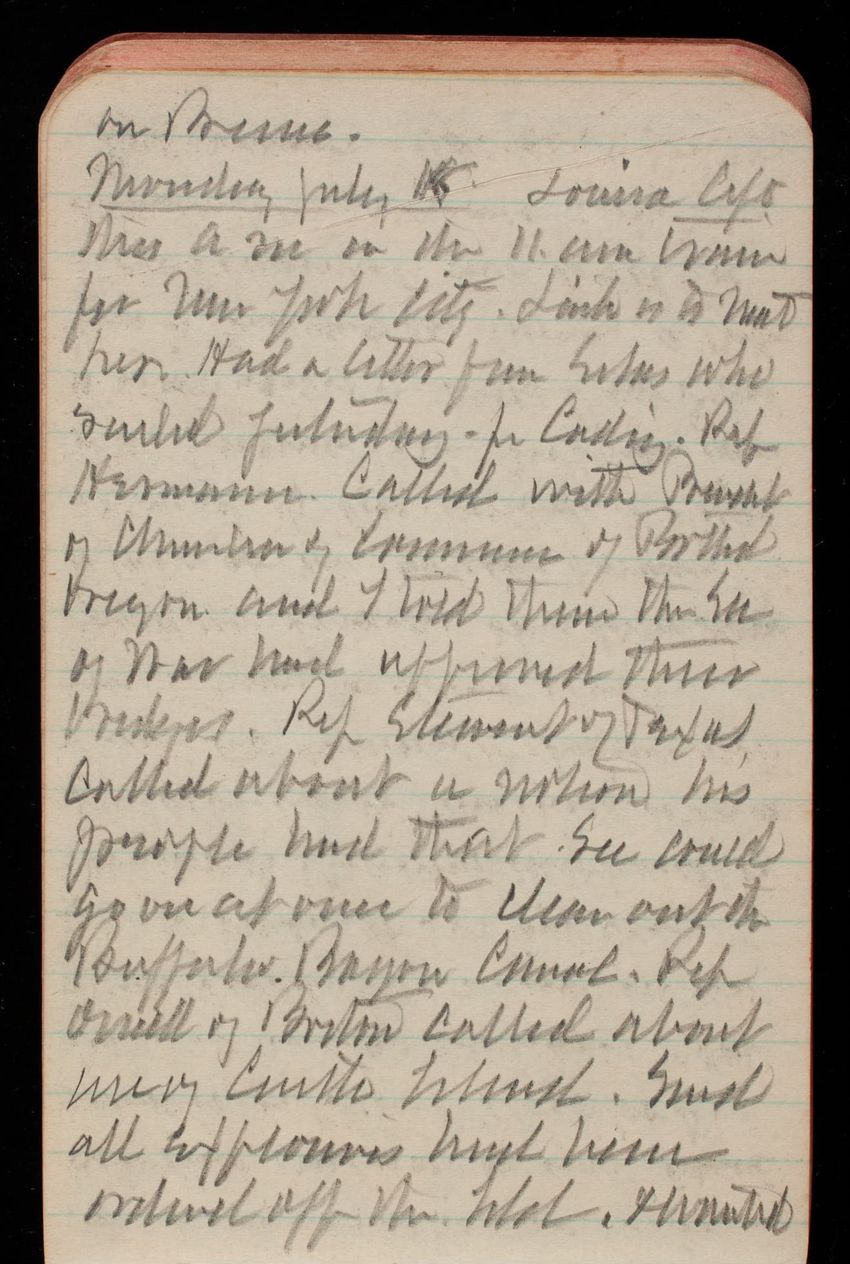 on Bruno.
Monday July 18 Louisa left
this a m on the 11. am train
for New York City. Link is to meet
her. Had a letter from Silas who
sailed yesterday for Cadiz. Rep
Hermann. Called with Presdt
of Chamber of Commerce of Portld
Oregon and I told them the Sec
of War had approved their
bridges. Rep Stewart of Texas
called about a notion his
people had that Sec could
go on at once to clear out the
Buffalo. Bayou Canal. Rep
of Boston called about
use of Castle Island. Said
all explosives had been
ordered off the Isld. & wanted